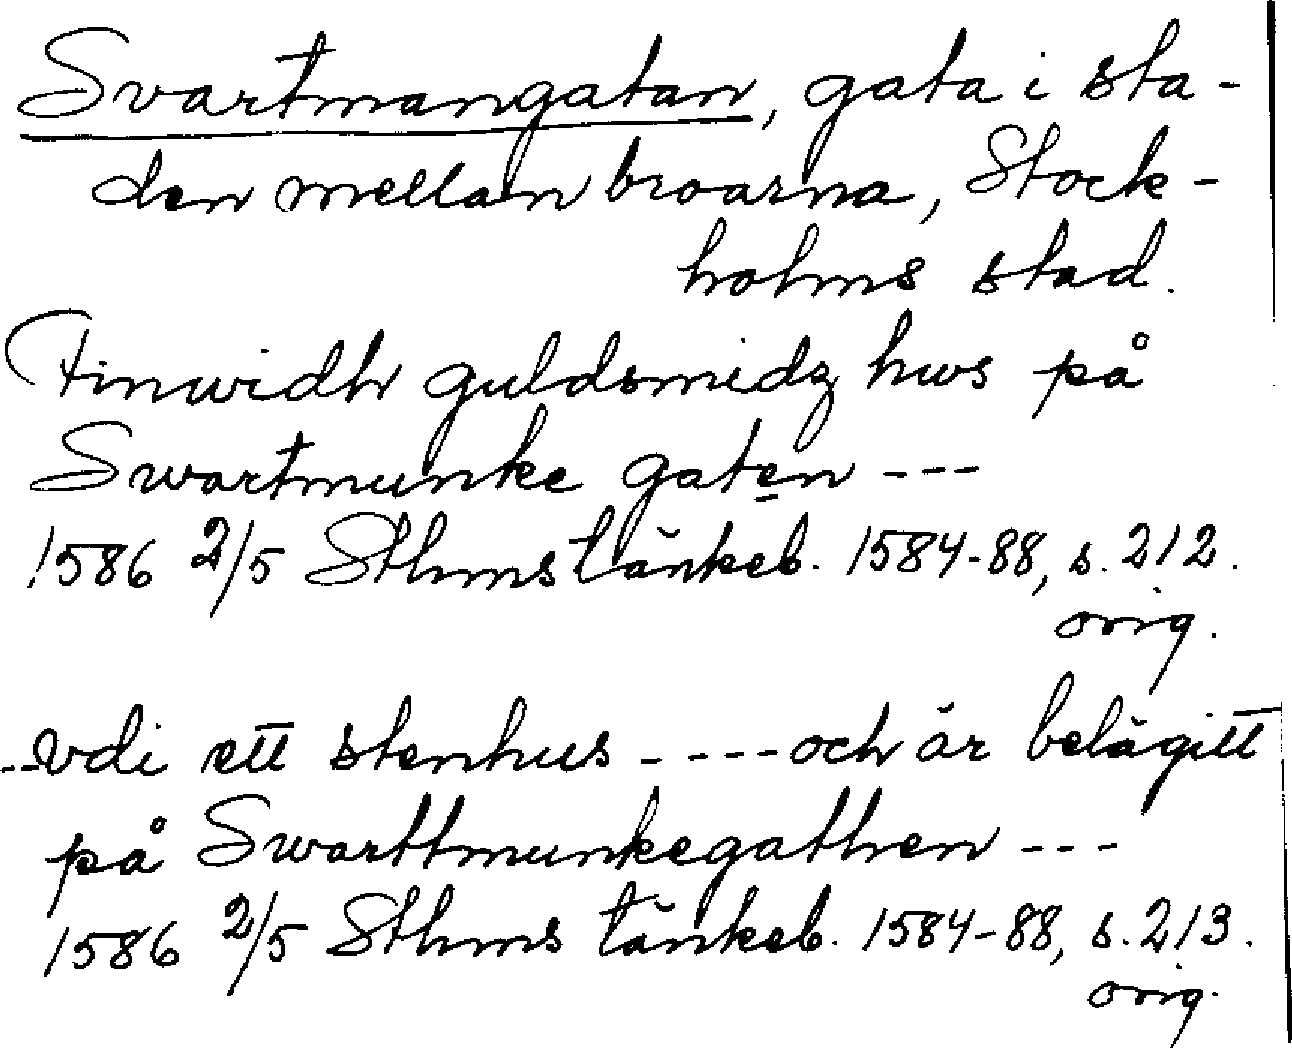 Svartmangatan, gata i sta-
den mellan broarna, Stock-
holms stad.
Finwidh guldsmidz hws på
Swartmunke gaten ---
1586 2/5 Sthms tänkeb. 1584-88, s. 212.
orig.
--vdi ett stenhus ---- och är belägitt
på Swarttmunkegathen ---
1586 2/5 Sthms tänkeb. 1584-88, s. 213.
orig.